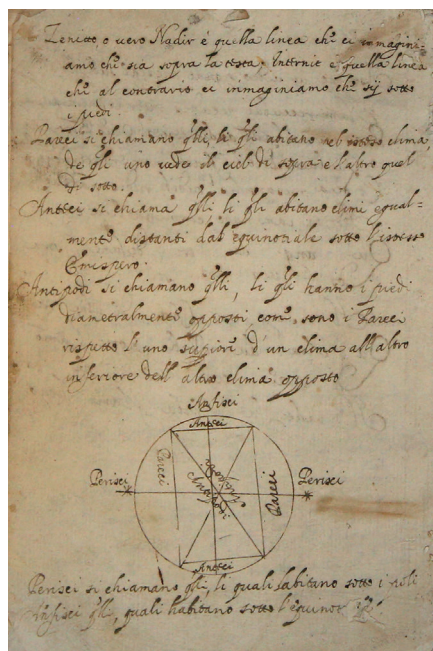 Zenitto o vero Nadir è quella linea che ci immagini-
amo che sia sopra la testa; Inttrnic e quella linea
che al contrario ci inmaginiamo che sij sotto
i piedi
Pareci si chiamano qlli, li qli abitano nel istesso clima,
de qli uno vede il cielo di sopra e l'altro quel
di sotto.
Anttei si chiama qlli li qli abitano climi equal-
mente distanti dal equinoziale sotto l'istesso
Emispero.
Antipodi si chiamano qlli, li qli hanno i piedi
diametralmente opposti come sono i Pareci
rispetto l'uno supiore d'un clima all'altro
inferiore dell'altro clima opposto
Anfisci
Anttei
Perisci
Pareci
Antipodi
Antipodi
Pareci
Perisci
Anttei
Perisci si chiamano qlli, li quali habitano sotto i poli
Anfisci qlli, quali habitano sotto l'equinot